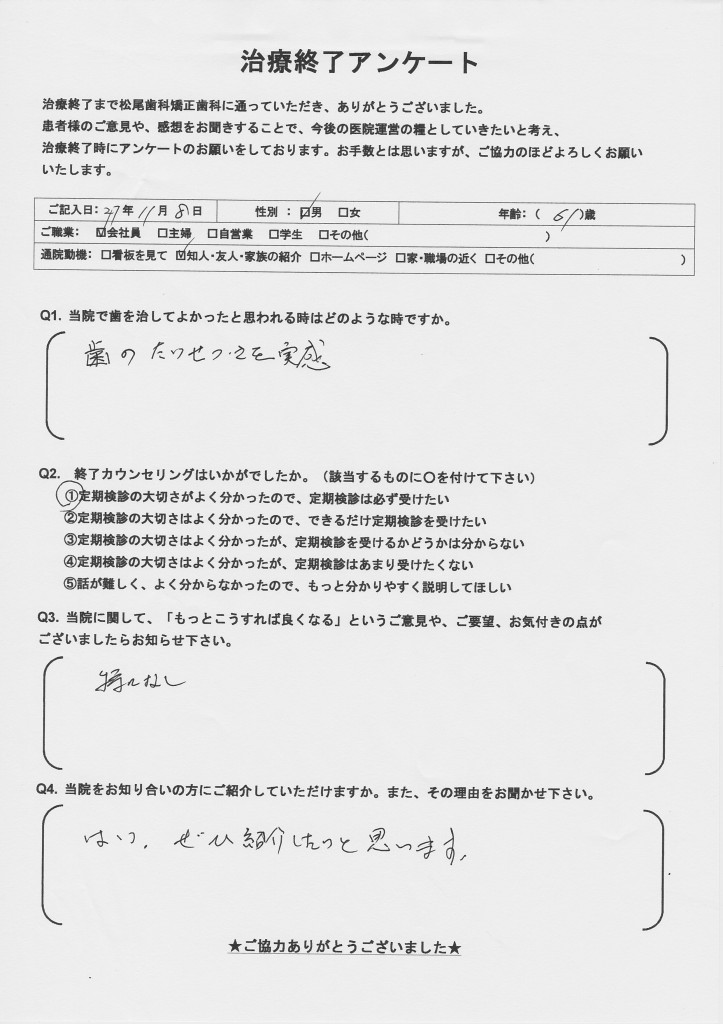 治療終了アンケート
治療終了まで松尾歯科矯正歯科に通っていただき、ありがとうございました。
患者様のご意見や、感想をお聞きすることで、今後の医院運営の糧としていきたいと考え、
治療終了時にアンケートのお願いをしております。お手数とは思いますが、ご協力のほどよろしくお願い
いたします。
ご記入日：27年11月8日 性別：☑男 □女 年齢：（61）歳
ご職業：☑会社員 □主婦 □自営業 □学生 □その他（ ）
通院動機：□看板を見て ☑知人・友人・家族の紹介 □ホームページ □家・職場の近く □その他（ ）
Q1. 当院で歯を治してよかったと思われる時はどのような時ですか。
歯のたいせつさを実感
Q2. 終了カウンセリングはいかがでしたか。（該当するものに〇を付けて下さい）
①定期検診の大切さがよく分かったので、定期検診は必ず受けたい
②定期検診の大切さはよく分かったので、できるだけ定期検診を受けたい
③定期検診の大切さはよく分かったが、定期検診を受けるかどうかは分からない
④定期検診の大切さはよく分かったが、定期検診はあまり受けたくない
⑤話が難しく、よく分からなかったので、もっと分かりやすく説明してほしい
Q3. 当院に関して、「もっとこうすれば良くなる」というご意見や、ご要望、お気付きの点が
ございましたらお知らせ下さい。
特になし
Q4. 当院をお知り合いの方にご紹介していただけますか。また、その理由をお聞かせ下さい。
はい、ぜひ紹介したいと思います。
★ご協力ありがとうございました★